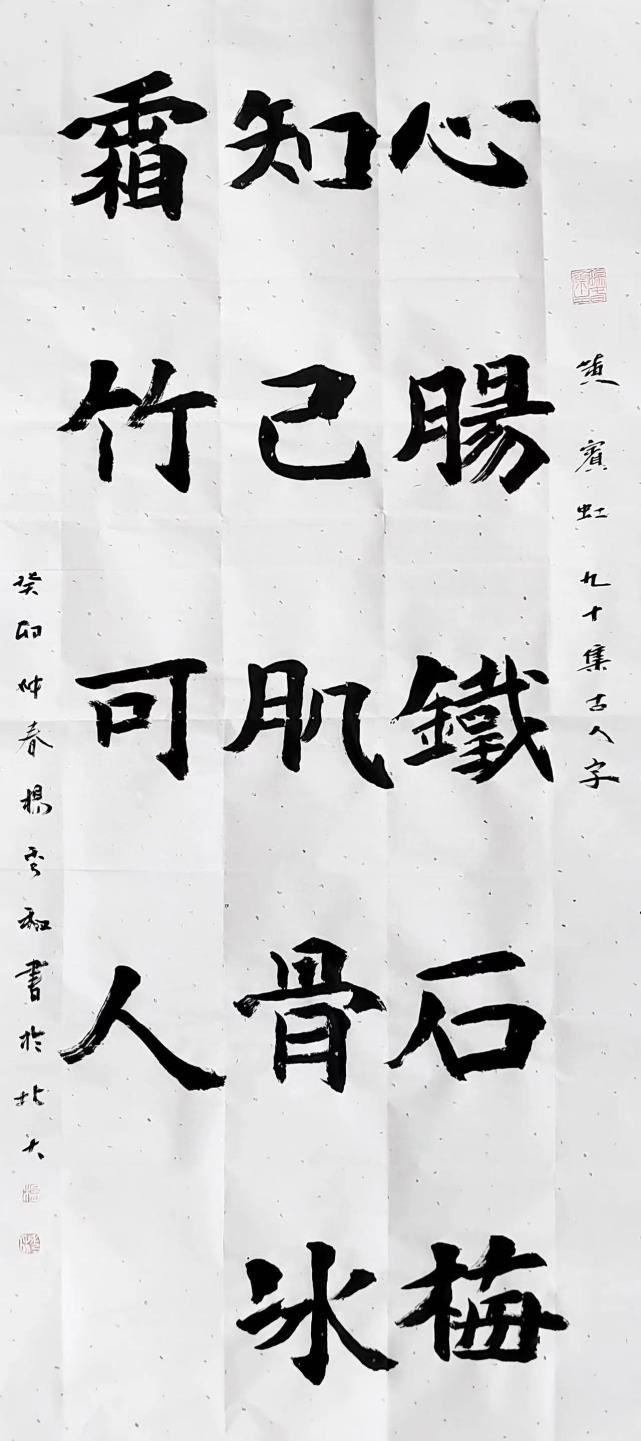 黄賓虹九十集古人字
心腸鐵石梅
知己肌骨冰
霜竹可人
癸卯仲春楊雲和書於北大